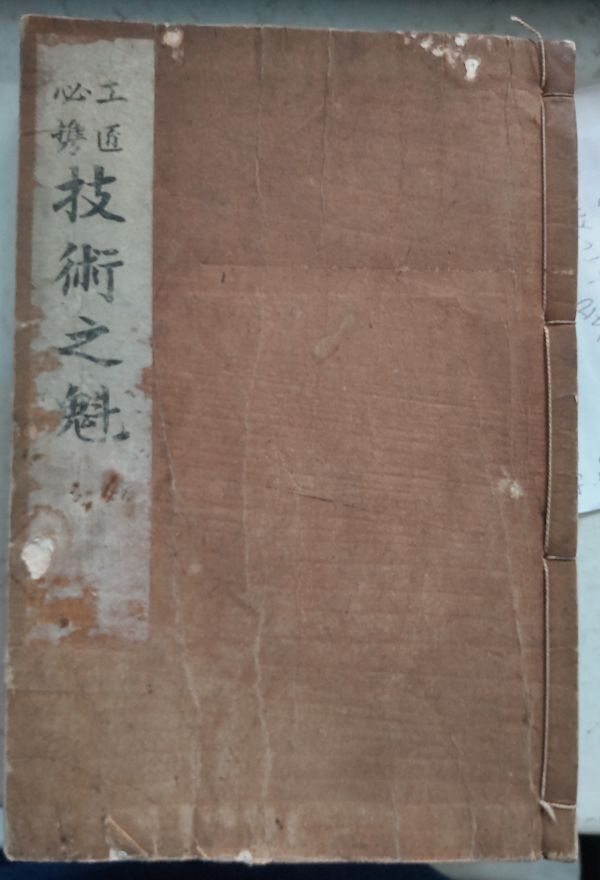 工匠
必携
技術之魁